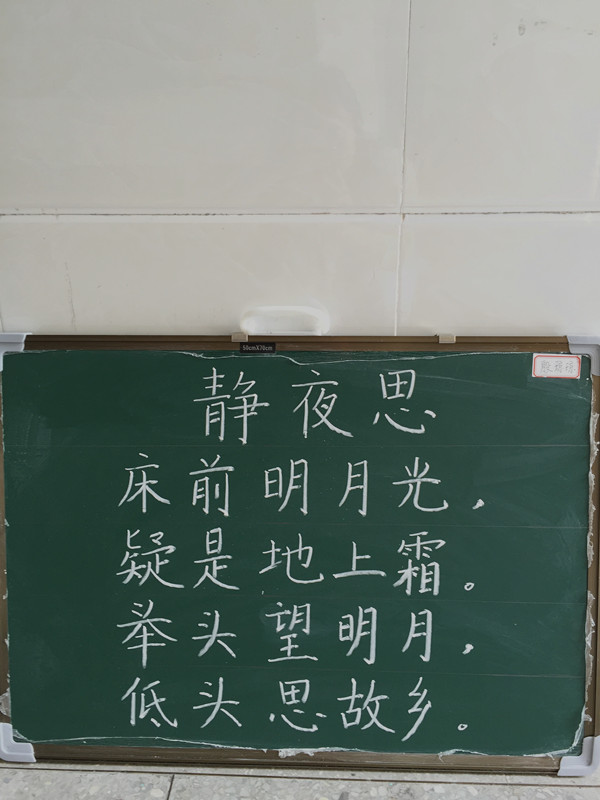 50cmX70cm
静夜思
床前明月光，
疑是地上霜。
举头望明月，
低头思故乡。